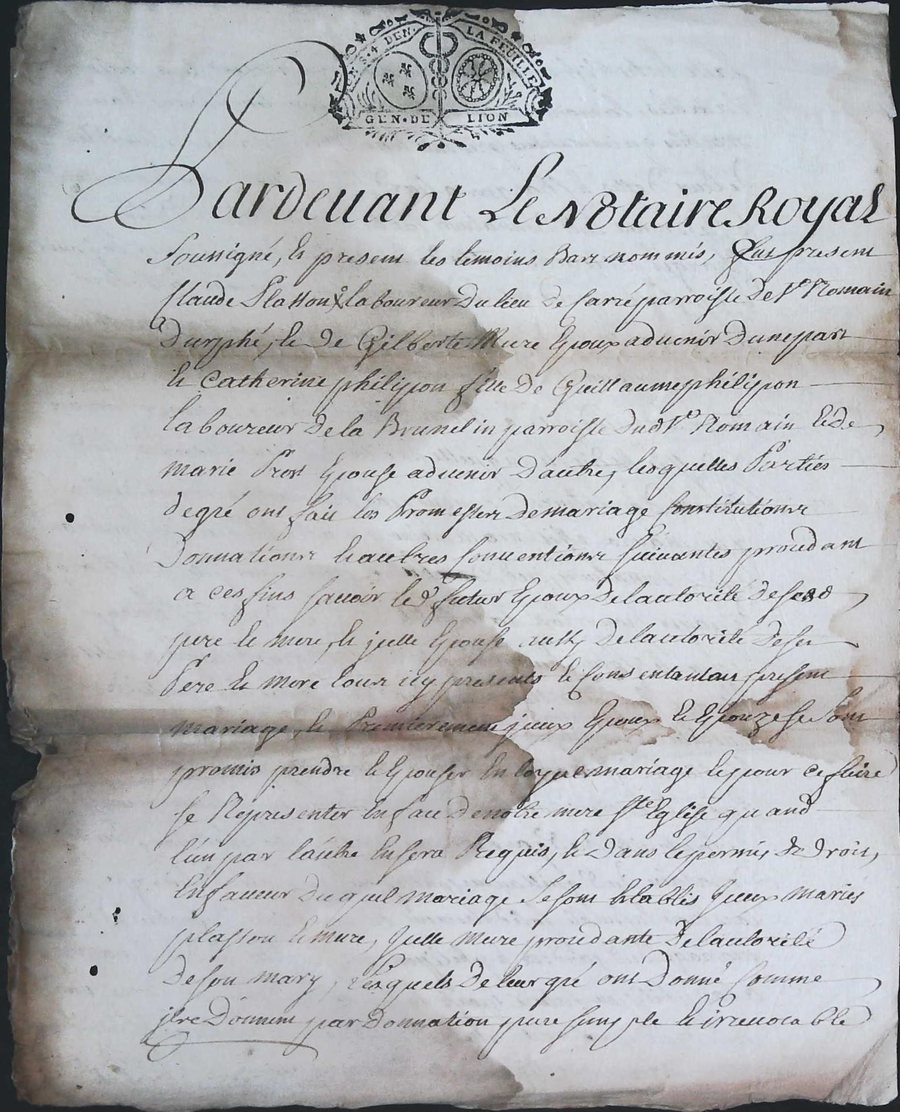 DEN. LA FEUILLE
GEN. DE LION
Pardeuant Le Notaire Royal
soussigné, et present les temoins Bas nommés, fut present
Claude Platton laboureur du lieu de parroisse de St Romain
Durphé, et de Gilberte Mure Epoux aduenir dune part
et Catherine philipon fille de Guillaume philipon
laboureur de la Brunelin parroisse dud St Romain et de
marie Prost Epouse aduenir dautre, lesquelles Parties
de gré ont fait les Promesses de mariage Constitutions
Donnations et autres Conuentions suiuantes procedant
a ces fins sauoir led futur Epoux de lautorité de sesd
pere et mere, et jcelle Epouse aussy de lautorité de ses
Pere et mere tous icy presents et consentant au present
mariage, et Premierement jceux Epoux et Epouze se sont
promis prendre et Epouser En loyal mariage et pour ce faire
se Representer En face de notre mere Ste Eglise quand
lun par lautre En sera Requis, et Dans le permis de Droit,
En faueur duquel mariage se sont Etablis jceux mariés
platton et mure, jcelle mure procedante de lautorité
de son mary, lesquels de leur gré ont Donné comme
par Donnation pure simple et irreuocable